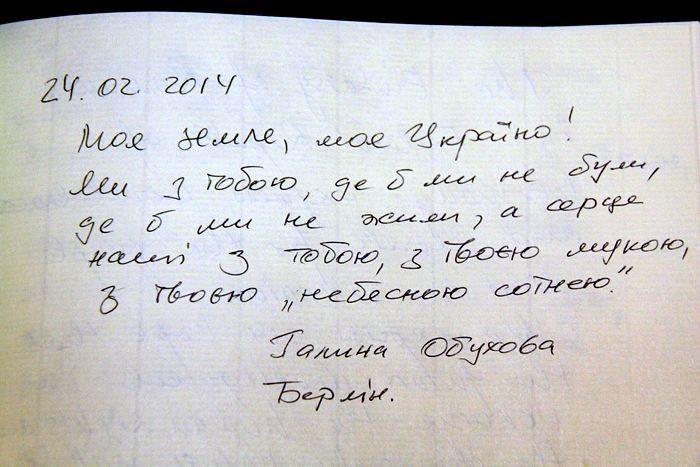 24.02.2014
Моя земле, моя Україно!
Ми з тобою, де б ми не були,
де б ми не жили, а серце
наші з тобою, з твоєю мукою,
з твоєю „небесною сотнею."
Галина Обухова
Берлін.